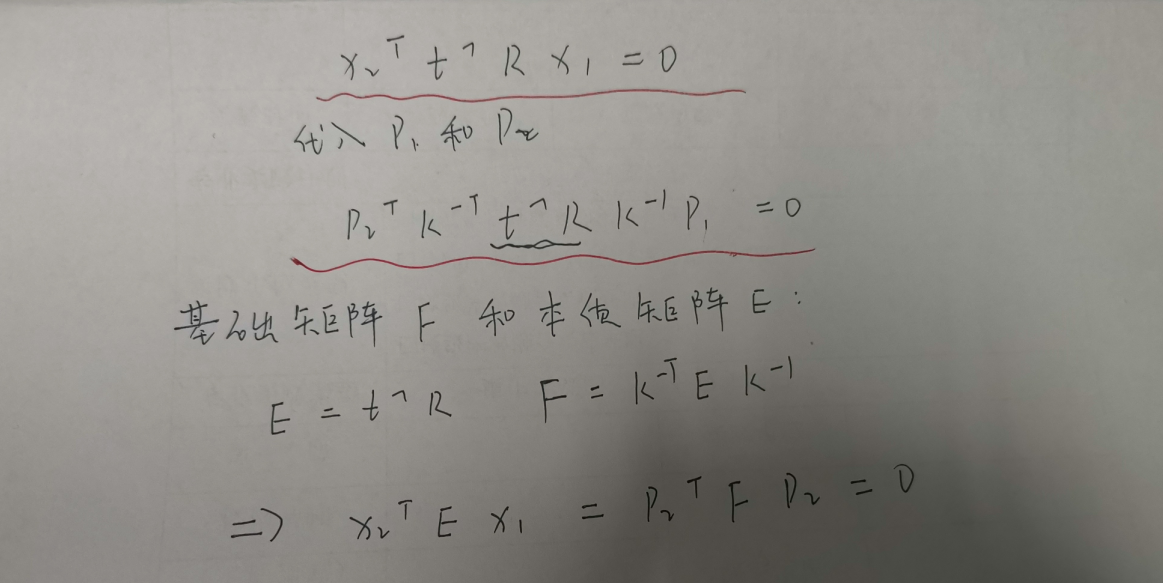 x₂ᵀ t^ R x₁ = 0
代入 P₁ 和 P₂
P₂ᵀ K⁻ᵀ t^ R K⁻¹ P₁ = 0
基础矩阵 F 和本质矩阵 E:
E = t^ R F = K⁻ᵀ E K⁻¹
=> x₂ᵀ E x₁ = P₂ᵀ F P₂ = 0